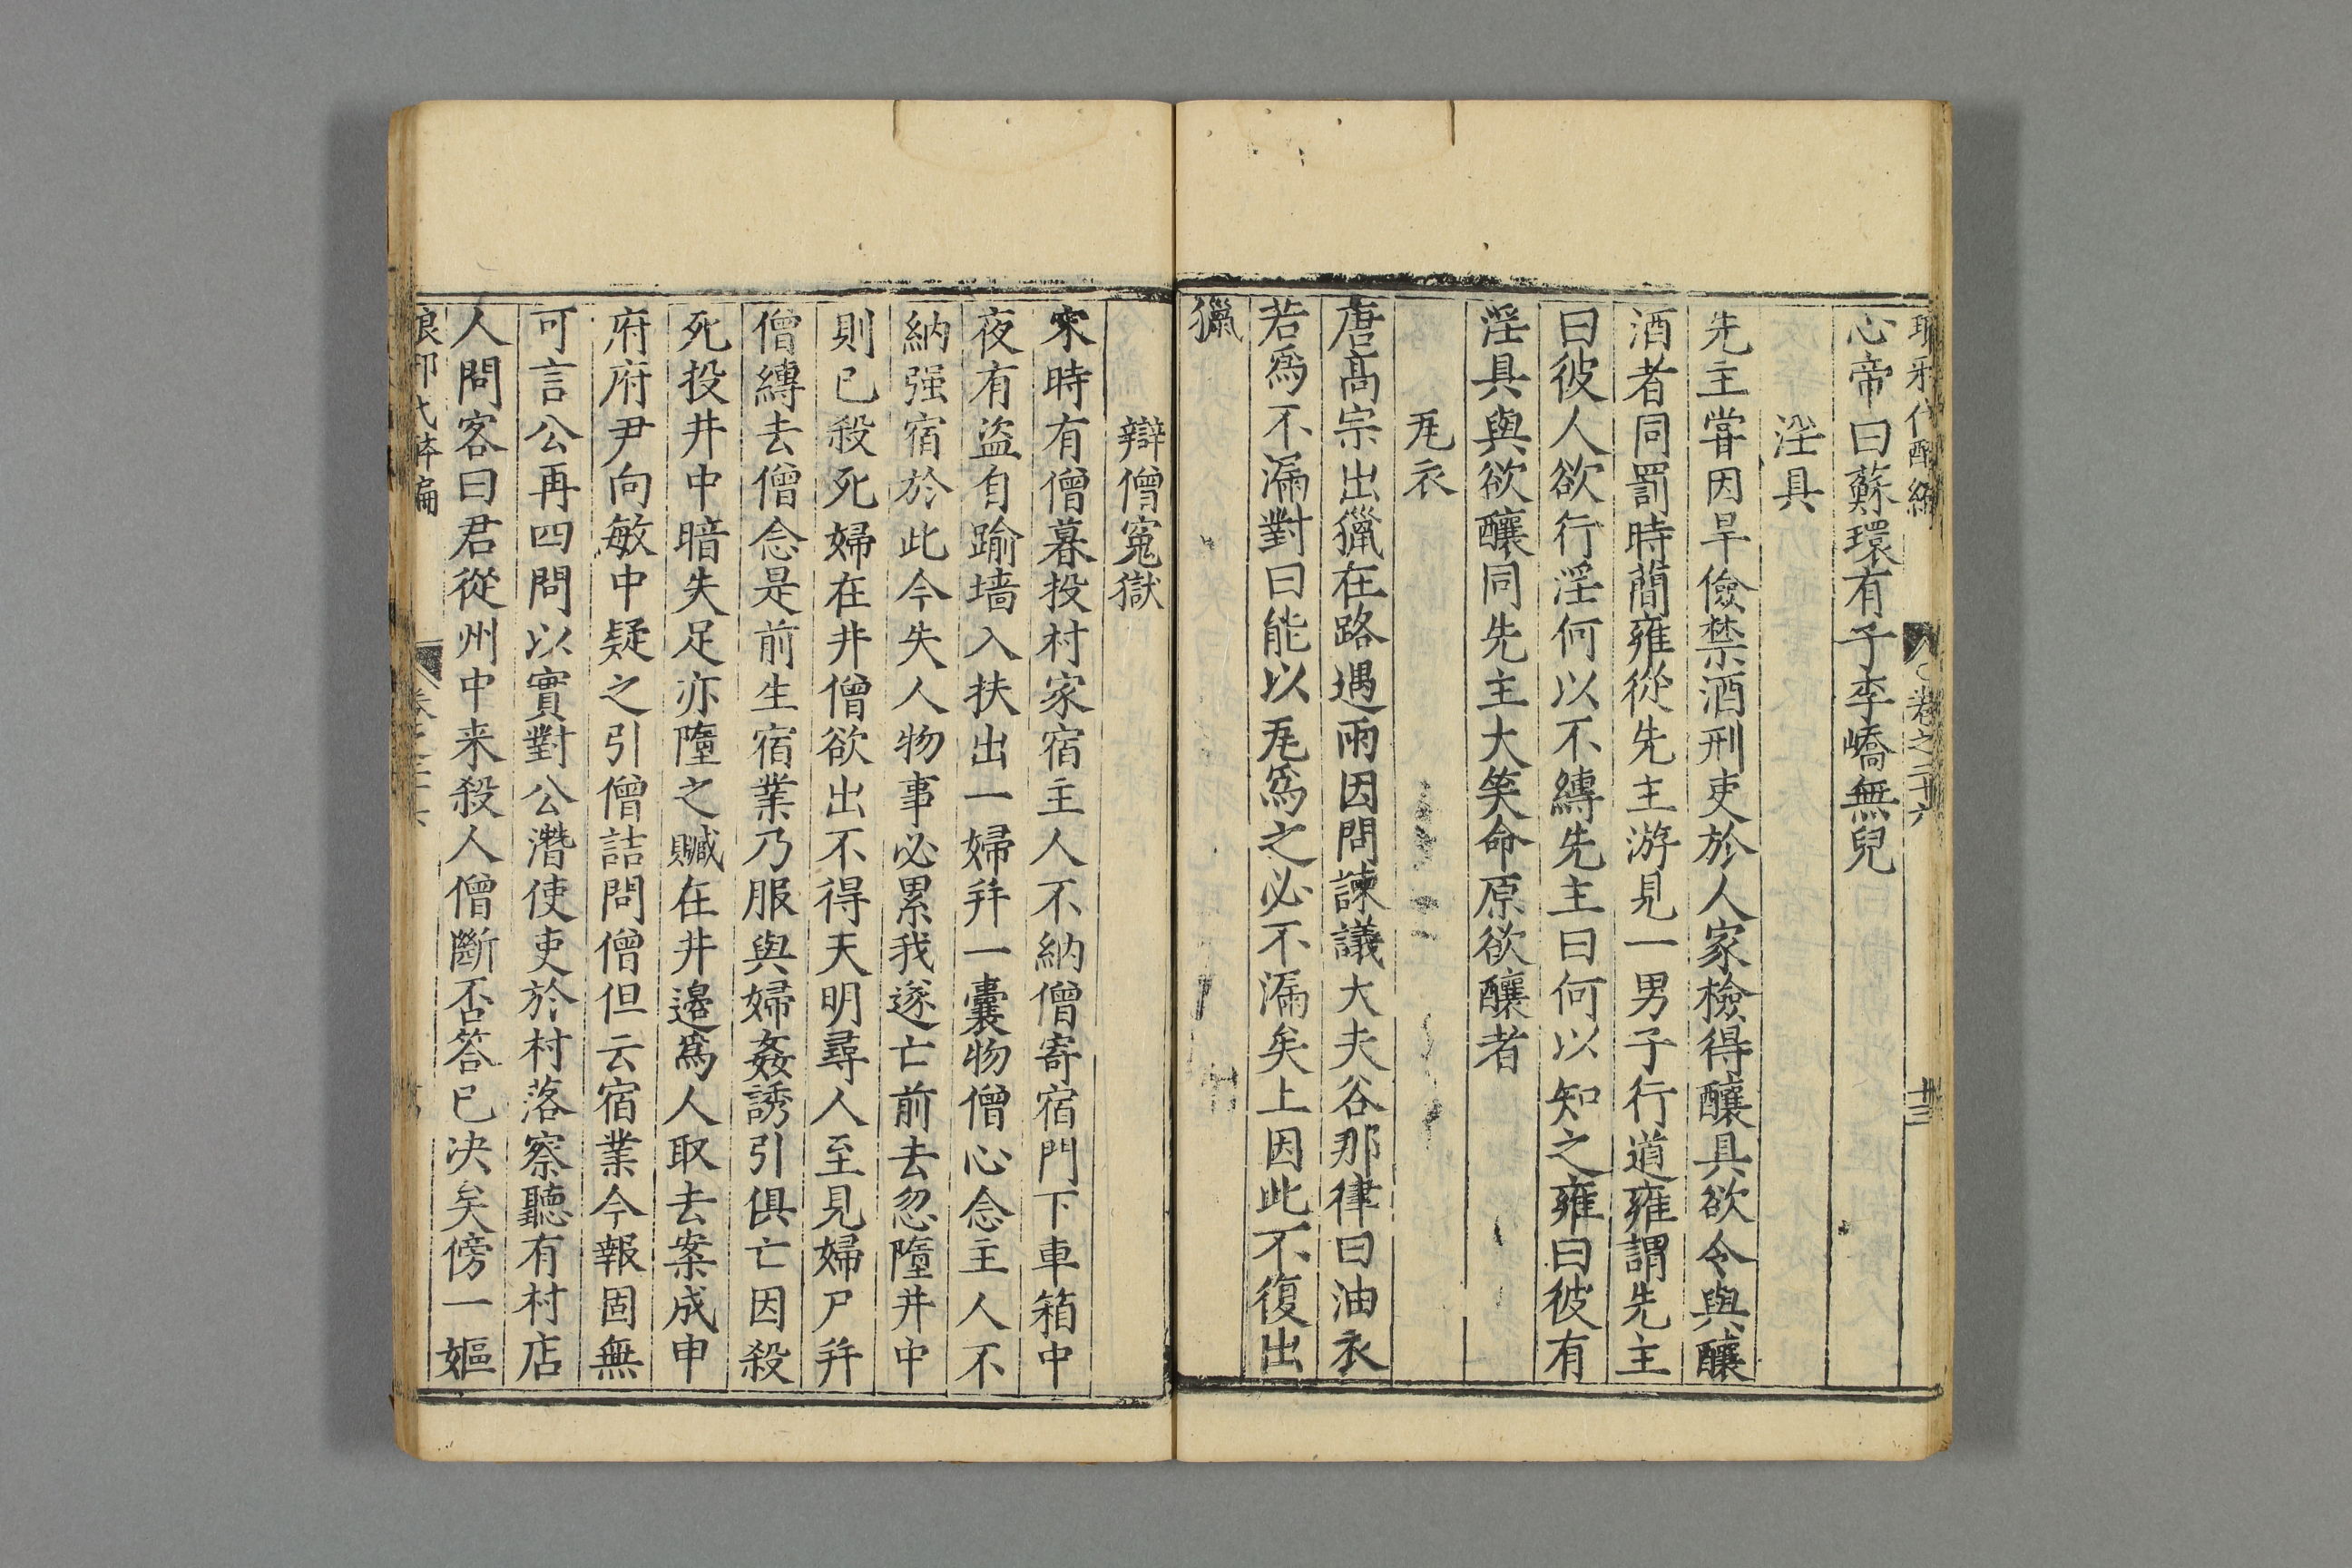 瑯邪代醉編 卷之二十六 十三
心帝曰蘇環有子李嶠無兒
淫具
先主嘗因旱儉禁酒刑吏於人家檢得釀具欲令與釀
酒者同罰時簡雍從先主游見一男子行道雍謂先主
曰彼人欲行淫何以不縛先主曰何以知之雍曰彼有
淫具與欲釀同先主大笑命原欲釀者
瓦衣
唐高宗出獵在路遇雨因問諫議大夫谷那律曰油衣
若爲不漏對曰能以瓦爲之必不漏矣上因此不復出
獵
辯僧寃獄
宋時有僧暮投村家宿主人不納僧寄宿門下車箱中
夜有盜自踰墻入扶出一婦并一囊物僧心念主人不
納强宿於此今失人物事必累我遂亡前去忽墮井中
則已殺死婦在井僧欲出不得天明尋人至見婦尸并
僧縛去僧念是前生宿業乃服與婦姦誘引俱亡因殺
死投井中暗失足亦墮之贓在井邊爲人取去案成申
府府尹向敏中疑之引僧詰問僧但云宿業今報固無
可言公再四問以實對公潛使吏於村落察聽有村店
人問客曰君從州中来殺人僧斷否答已决矣傍一嫗